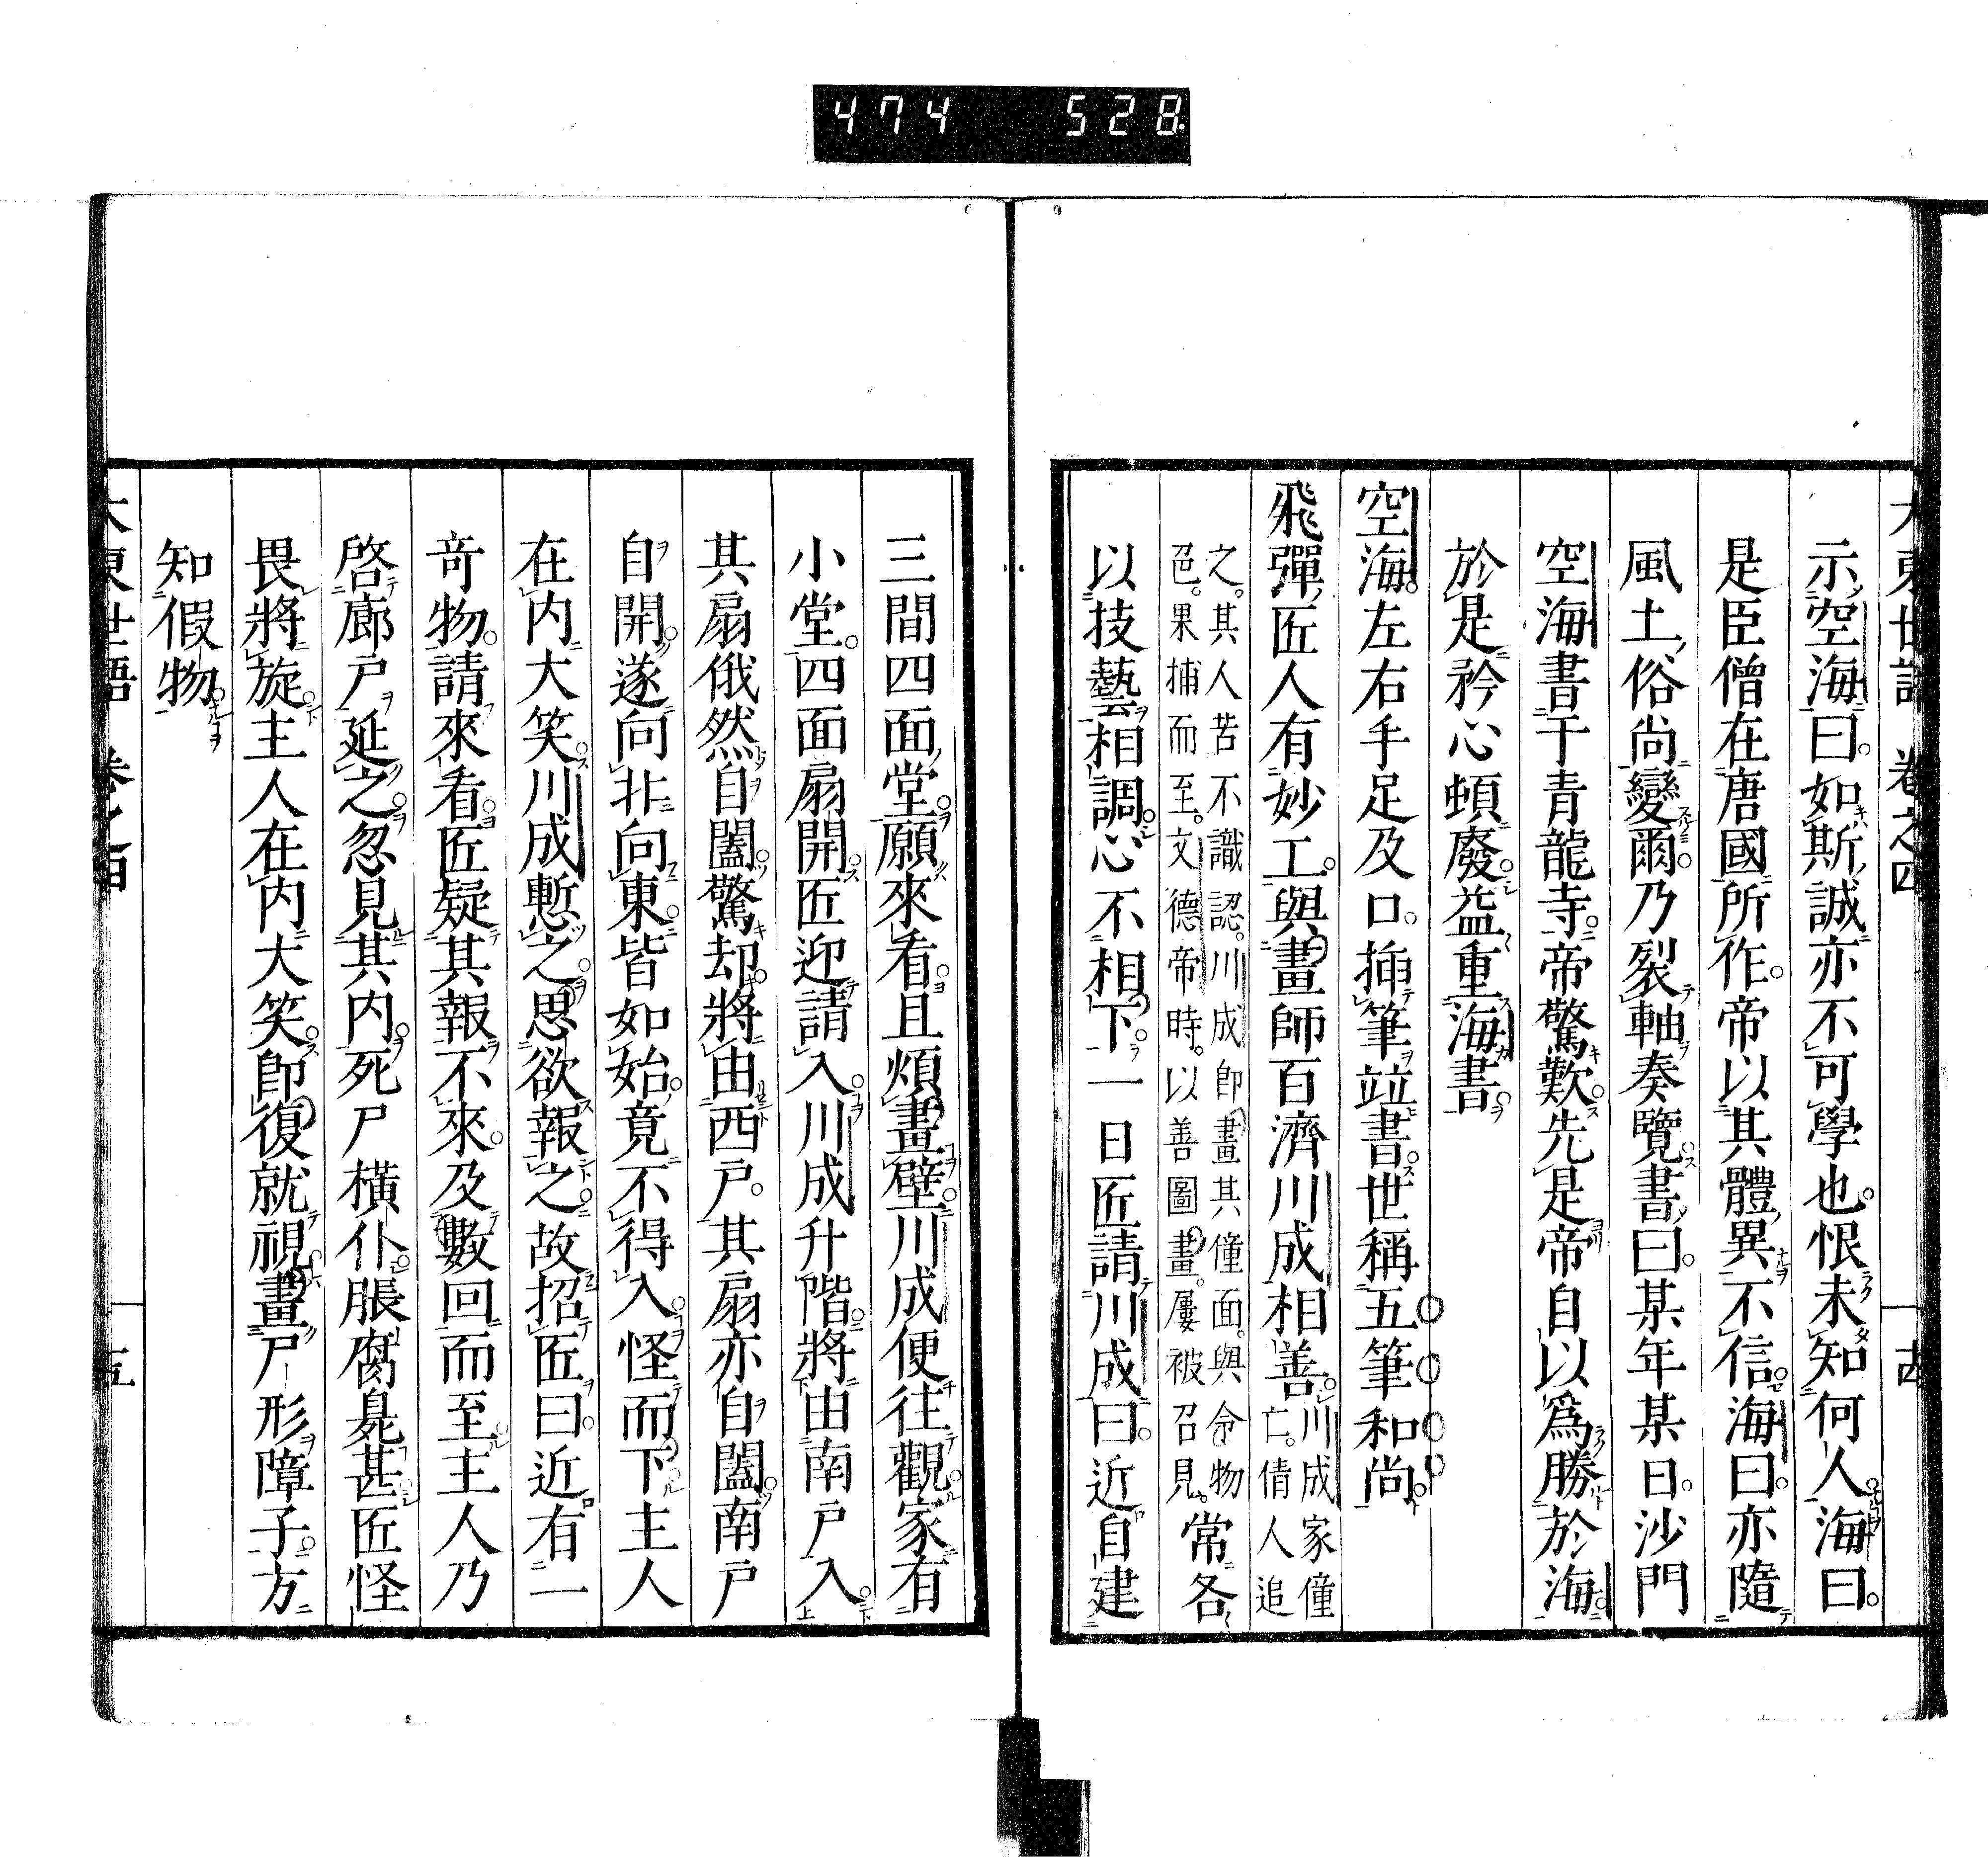 474 528
大東世語 卷之四 十四
示空海曰。如斯誠亦不可學也。恨未知何人。海曰。
是臣僧在唐國所作。帝以其體異不信。海曰。亦隨
風土俗尚變爾。乃裂軸奏覽。書曰。某年某日。沙門
空海書于青龍寺。帝驚歎。先是帝自以爲勝於海。
於是矜心頓廢。益重海書。
空海。左右手足及口。揷筆竝書。世稱五筆和尚。
飛彈匠人有妙工。與畫師百濟川成相善。川成家僮亡。倩人追
之。其人苦不識認。川成即畫其僮面。與令物色。果捕而至。文德帝時。以善圖畫。屢被召見。常各
以技藝相調。心不相下。一日匠請川成曰。近自建
三間四面堂。願來看。且煩畫壁。川成便往觀。家有
小堂。四面扇開。匠迎請入。川成升階。將由南戶入。
其扇俄然自闔。驚却。將由西戶。其扇亦自闔。南戶
自開。遂向北向東。皆如始。竟不得入。怪而下。主人
在内大笑。川成慙之。思欲報之。故招匠曰。近有一
竒物。請來看。匠疑其報不來。及數回而至。主人乃
啓廊戶延之。忽見其内。死尸橫仆。脹腐臭甚。匠怪
畏將旋。主人在内大笑。即復就視。畫尸形障子。方
知假物。
大東世語 卷之四 十五